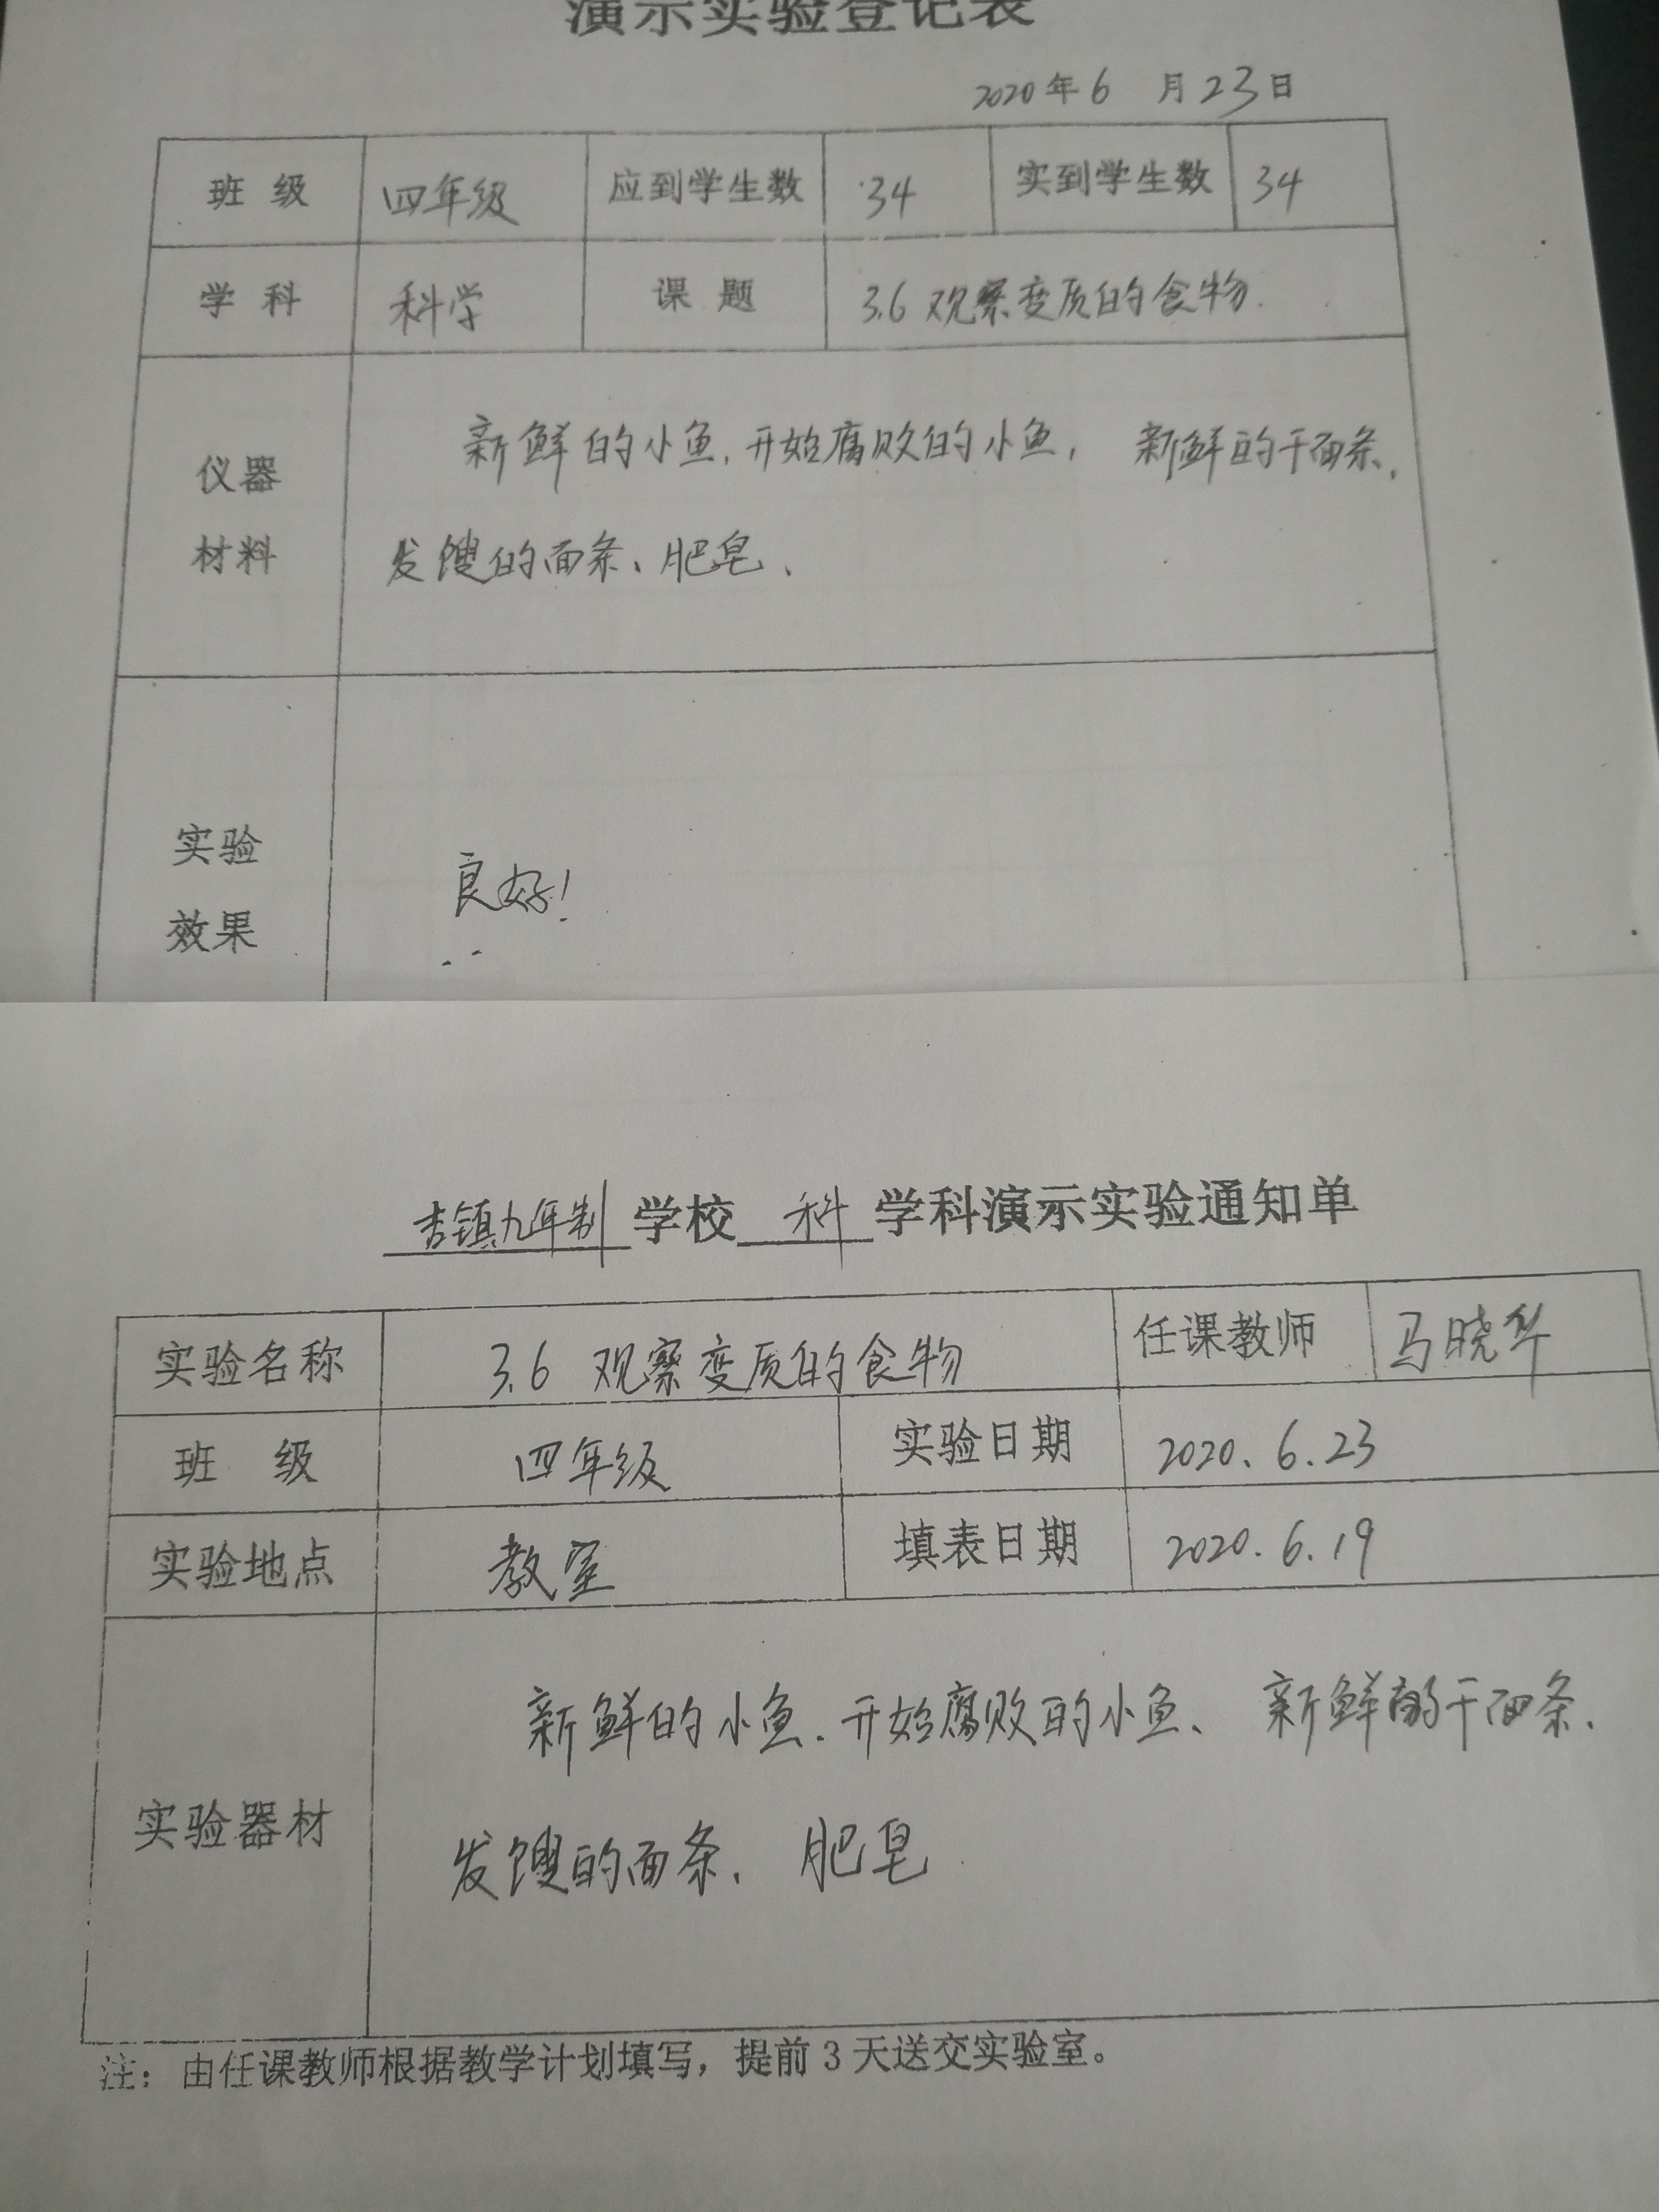 演示实验登记表
2020年6月23日
班级 四年级 应到学生数 34 实到学生数 34
学科 科学 课题 3.6 观察变质的食物.
仪器
材料
新鲜的小鱼、开始腐败的小鱼, 新鲜的干面条、
发馊的面条、肥皂、
实验
效果
良好!
杏镇九年制学校 科 学科演示实验通知单
实验名称 3.6 观察变质的食物 任课教师 马晓华
班级 四年级 实验日期 2020.6.23
实验地点 教室 填表日期 2020.6.19
实验器材
新鲜的小鱼、开始腐败的小鱼、新鲜的干面条、
发馊的面条、肥皂
注：由任课教师根据教学计划填写，提前3天送交实验室。